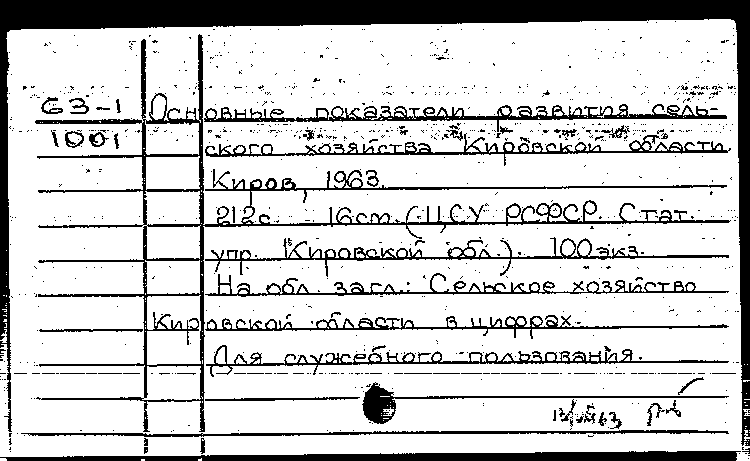 63-1 Основные показатели развития сель-
1001 ского хозяйства Кировской области
Киров, 1963.
212с. 16см. (ЦСУ РСФСР. Стат.
упр. Кировской обл.). 100экз.
На обл. загл.: Сельское хозяйство
Кировской области в цифрах.
Для служебного пользования.